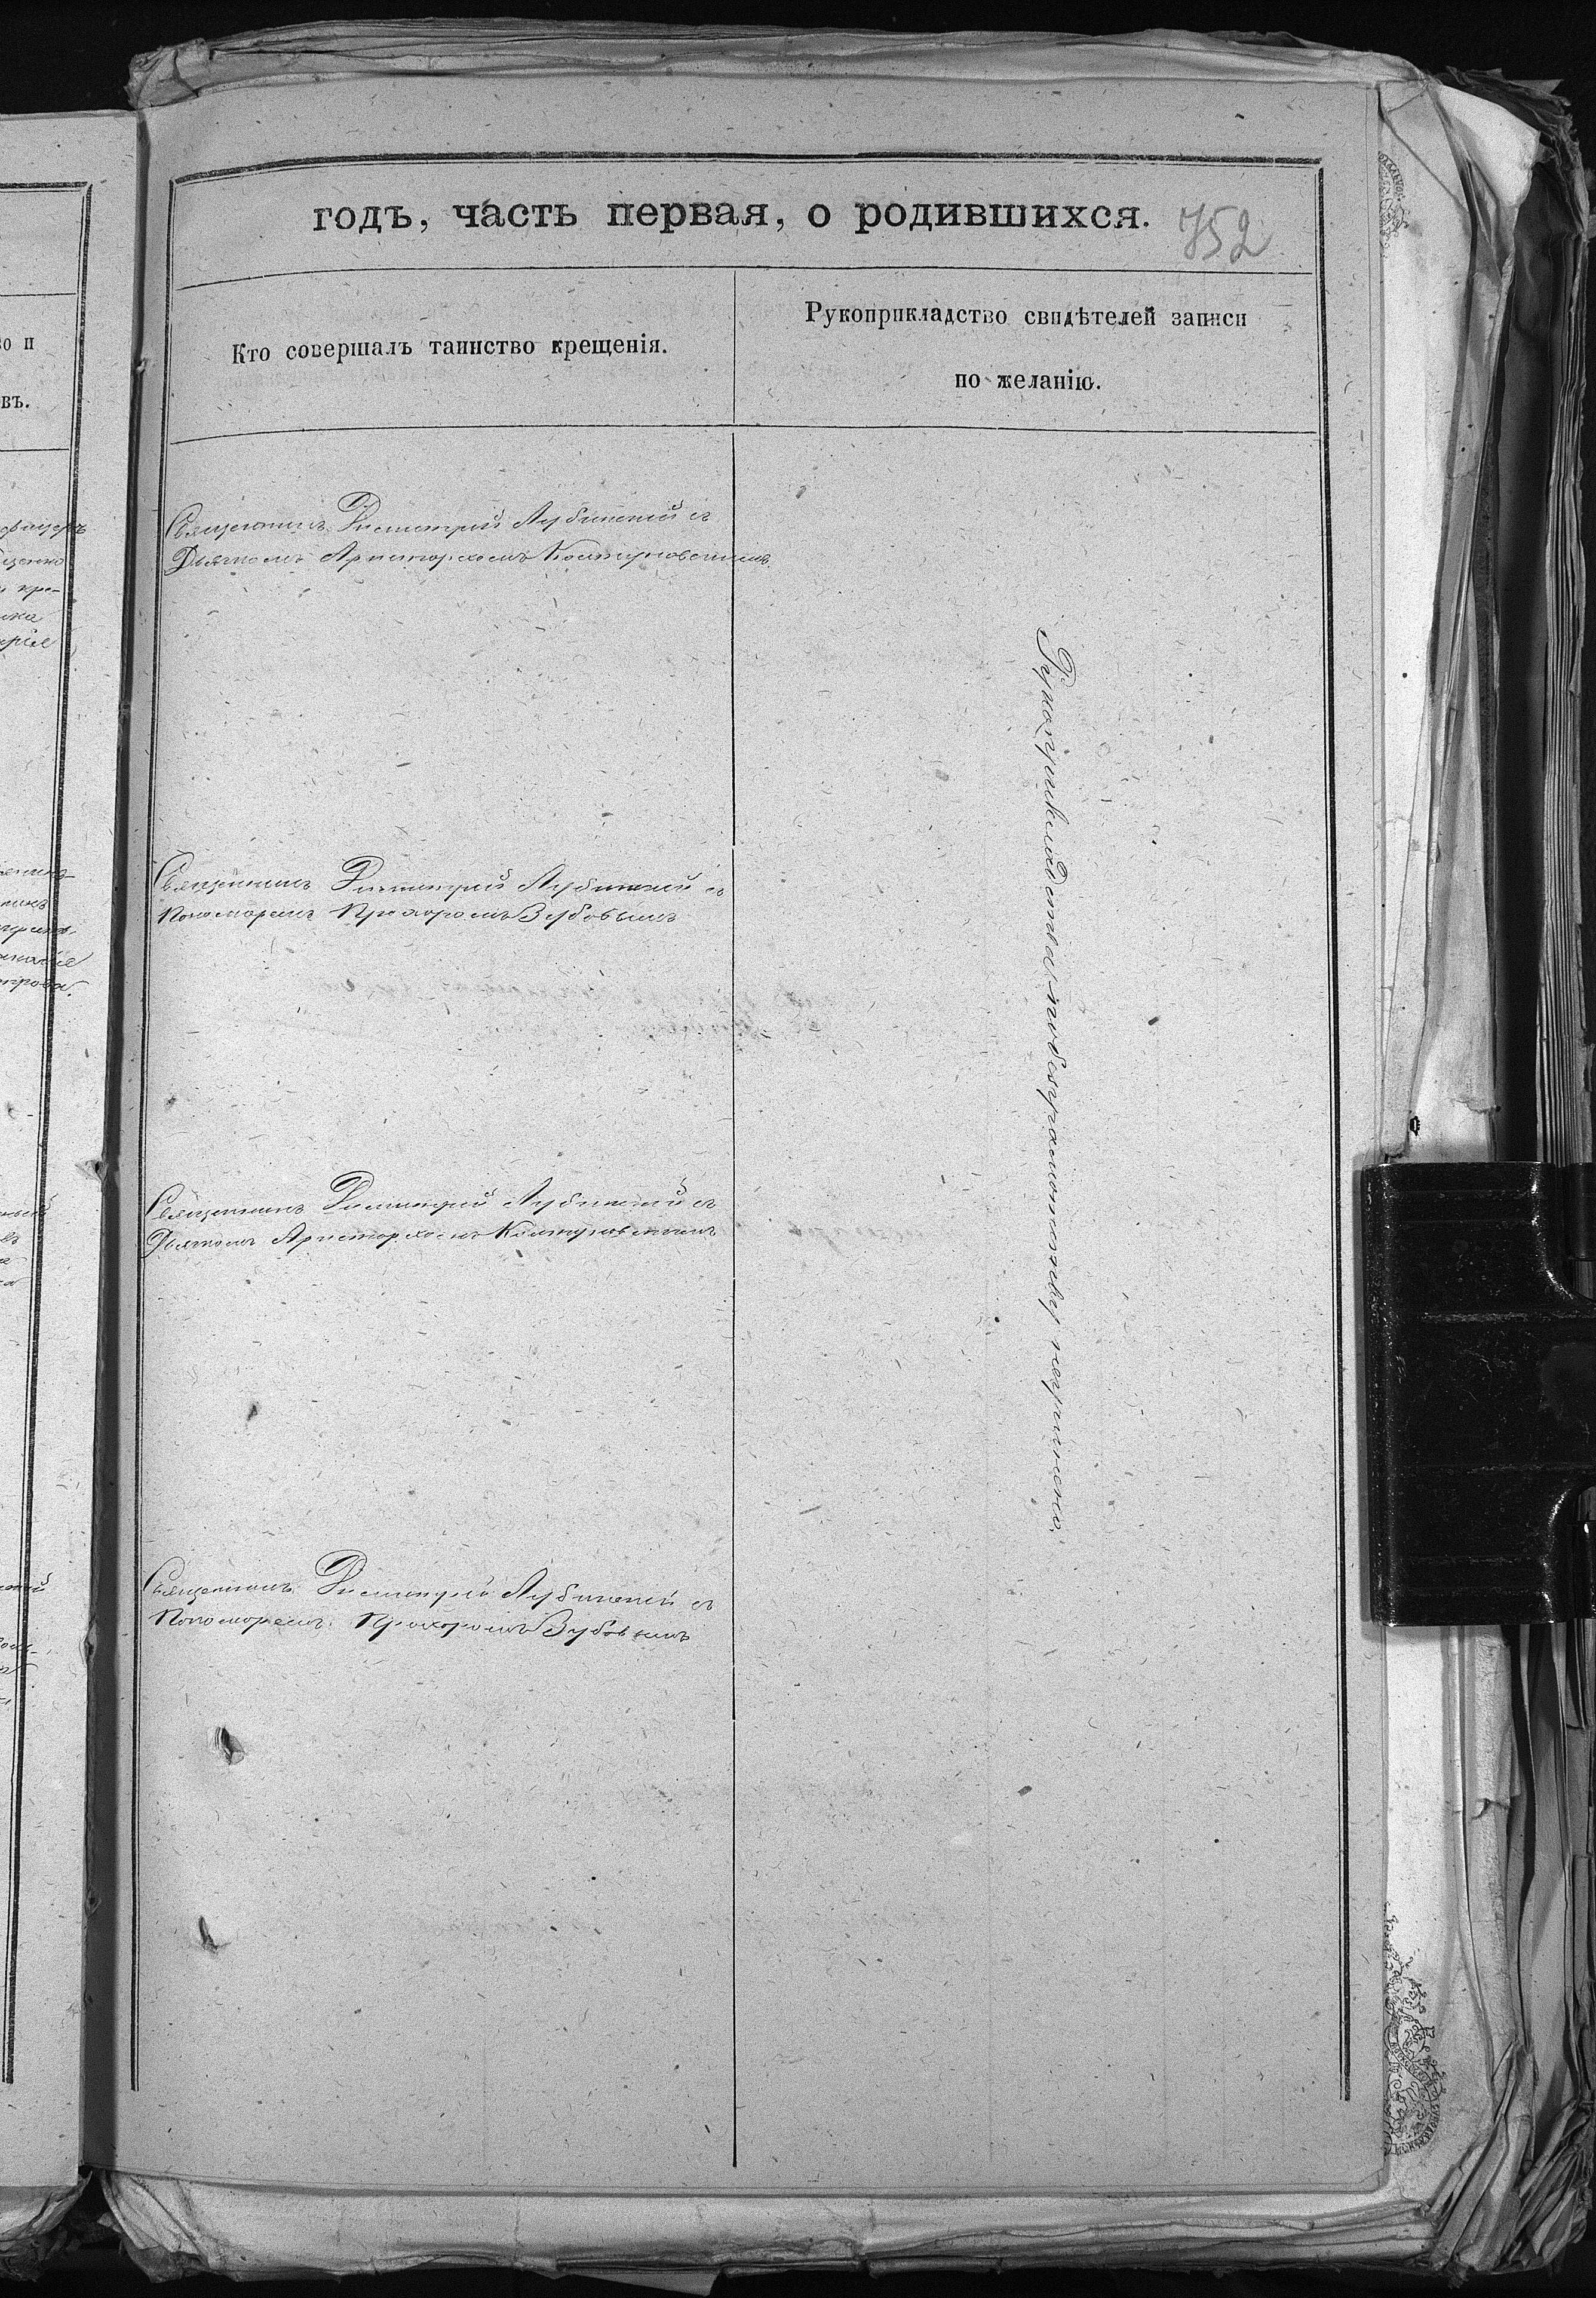 годъ, часть первая, о родившихся. 752
Кто совершалъ таинство крещенія.
Рукоприкладство свидѣтелей записи
по желанію.
Священникъ Димитрій Лубинский съ
Дьячкомъ Аристархомъ Колтуновскимъ
Священникъ Димитрій Лубинский съ
Пономаремъ Прохоромъ Зубовымъ
Священникъ Димитрій Лубинский съ
Дьячкомъ Аристархомъ Колтуновскимъ
Священникъ Димитрій Лубинский съ
Пономаремъ Прохоромъ Зубовымъ
Рукоприкладства по безграмотству неучинено.